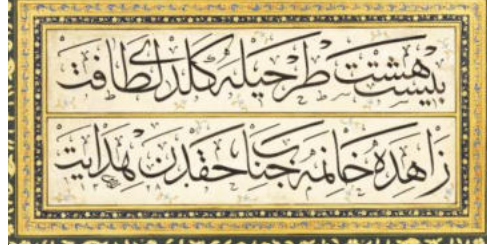 بیست هشت طرحیله كلدی لطافت
زاهده خانمه جناب حقدن هدایت